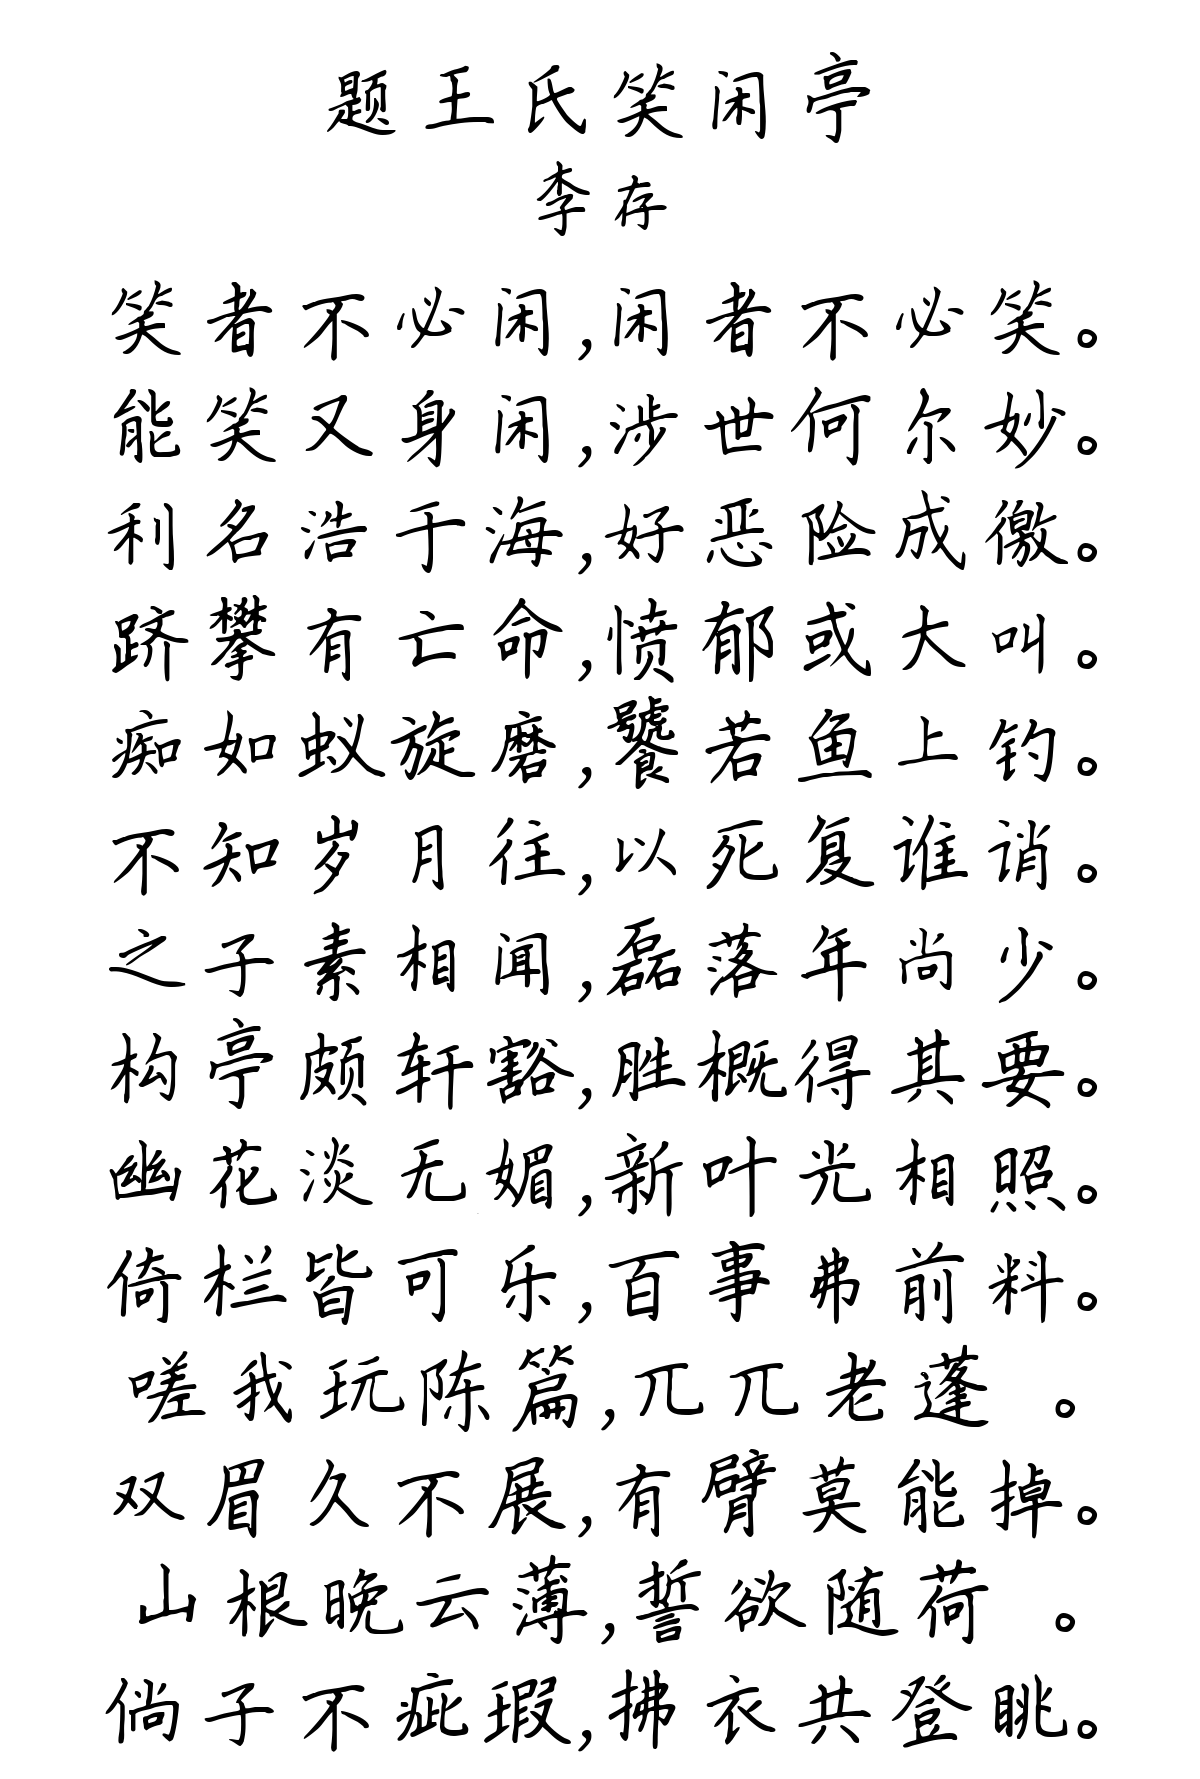 题王氏笑闲亭
李存
笑者不必闲,闲者不必笑。
能笑又身闲,涉世何尔妙。
利名浩于海,好恶险成徼。
跻攀有亡命,愤郁或大叫。
痴如蚁旋磨,饕若鱼上钓。
不知岁月往,以死复谁诮。
之子素相闻,磊落年尚少。
构亭颇轩豁,胜概得其要。
幽花淡无媚,新叶光相照。
倚栏皆可乐,百事弗前料。
嗟我玩陈篇,兀兀老蓬 。
双眉久不展,有臂莫能掉。
山根晚云薄,誓欲随荷 。
倘子不疵瑕,拂衣共登眺。